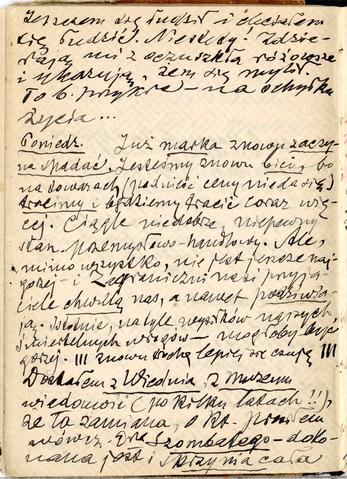 Jeszczem się łudził i chciałem
się łudzić! Niestety! Zdzie-
rają mi z oczu szkła różowsze
i ukazują, żem się mylił.
To b. przykre – na schyłku
życia...
Poniedz. Już marka znowu zaczy-
na spadać. Jesteśmy znowu bici, bo
na towarach (podnieść ceny nieda się)
tracimy i będziemy tracić coraz wię-
cej. Ciągle niedobrze, niepewny
stan przemysłowo-handlowy. Ale,
mimo wszystko, nie jest jeszcze naj-
gorzej – i zagraniczni nasi przyja-
ciele chwalą nas, a nawet podziwia-
ją. Istotnie, na tyle wysiłków naszych
śmiertelnych wrogów – mogłoby być
gorzej. !!! znowu trochę lepiej się czuję !!!
Dostałem z Wiednia, z Muzeum
wiadomość (po kilku latach!!),
że ta zamiana, o kt. pisałem
wówcz. Dra Szombatego – doko-
nana jest i skrzynia cała